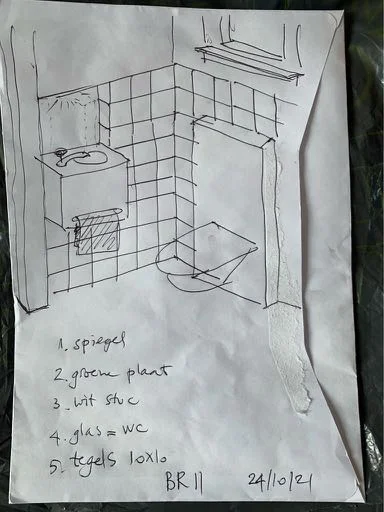 1. spiegel
2. groene plant
3. wit stuc
4. glas = wc
5. tegels 10x10
BR II 24/10/21